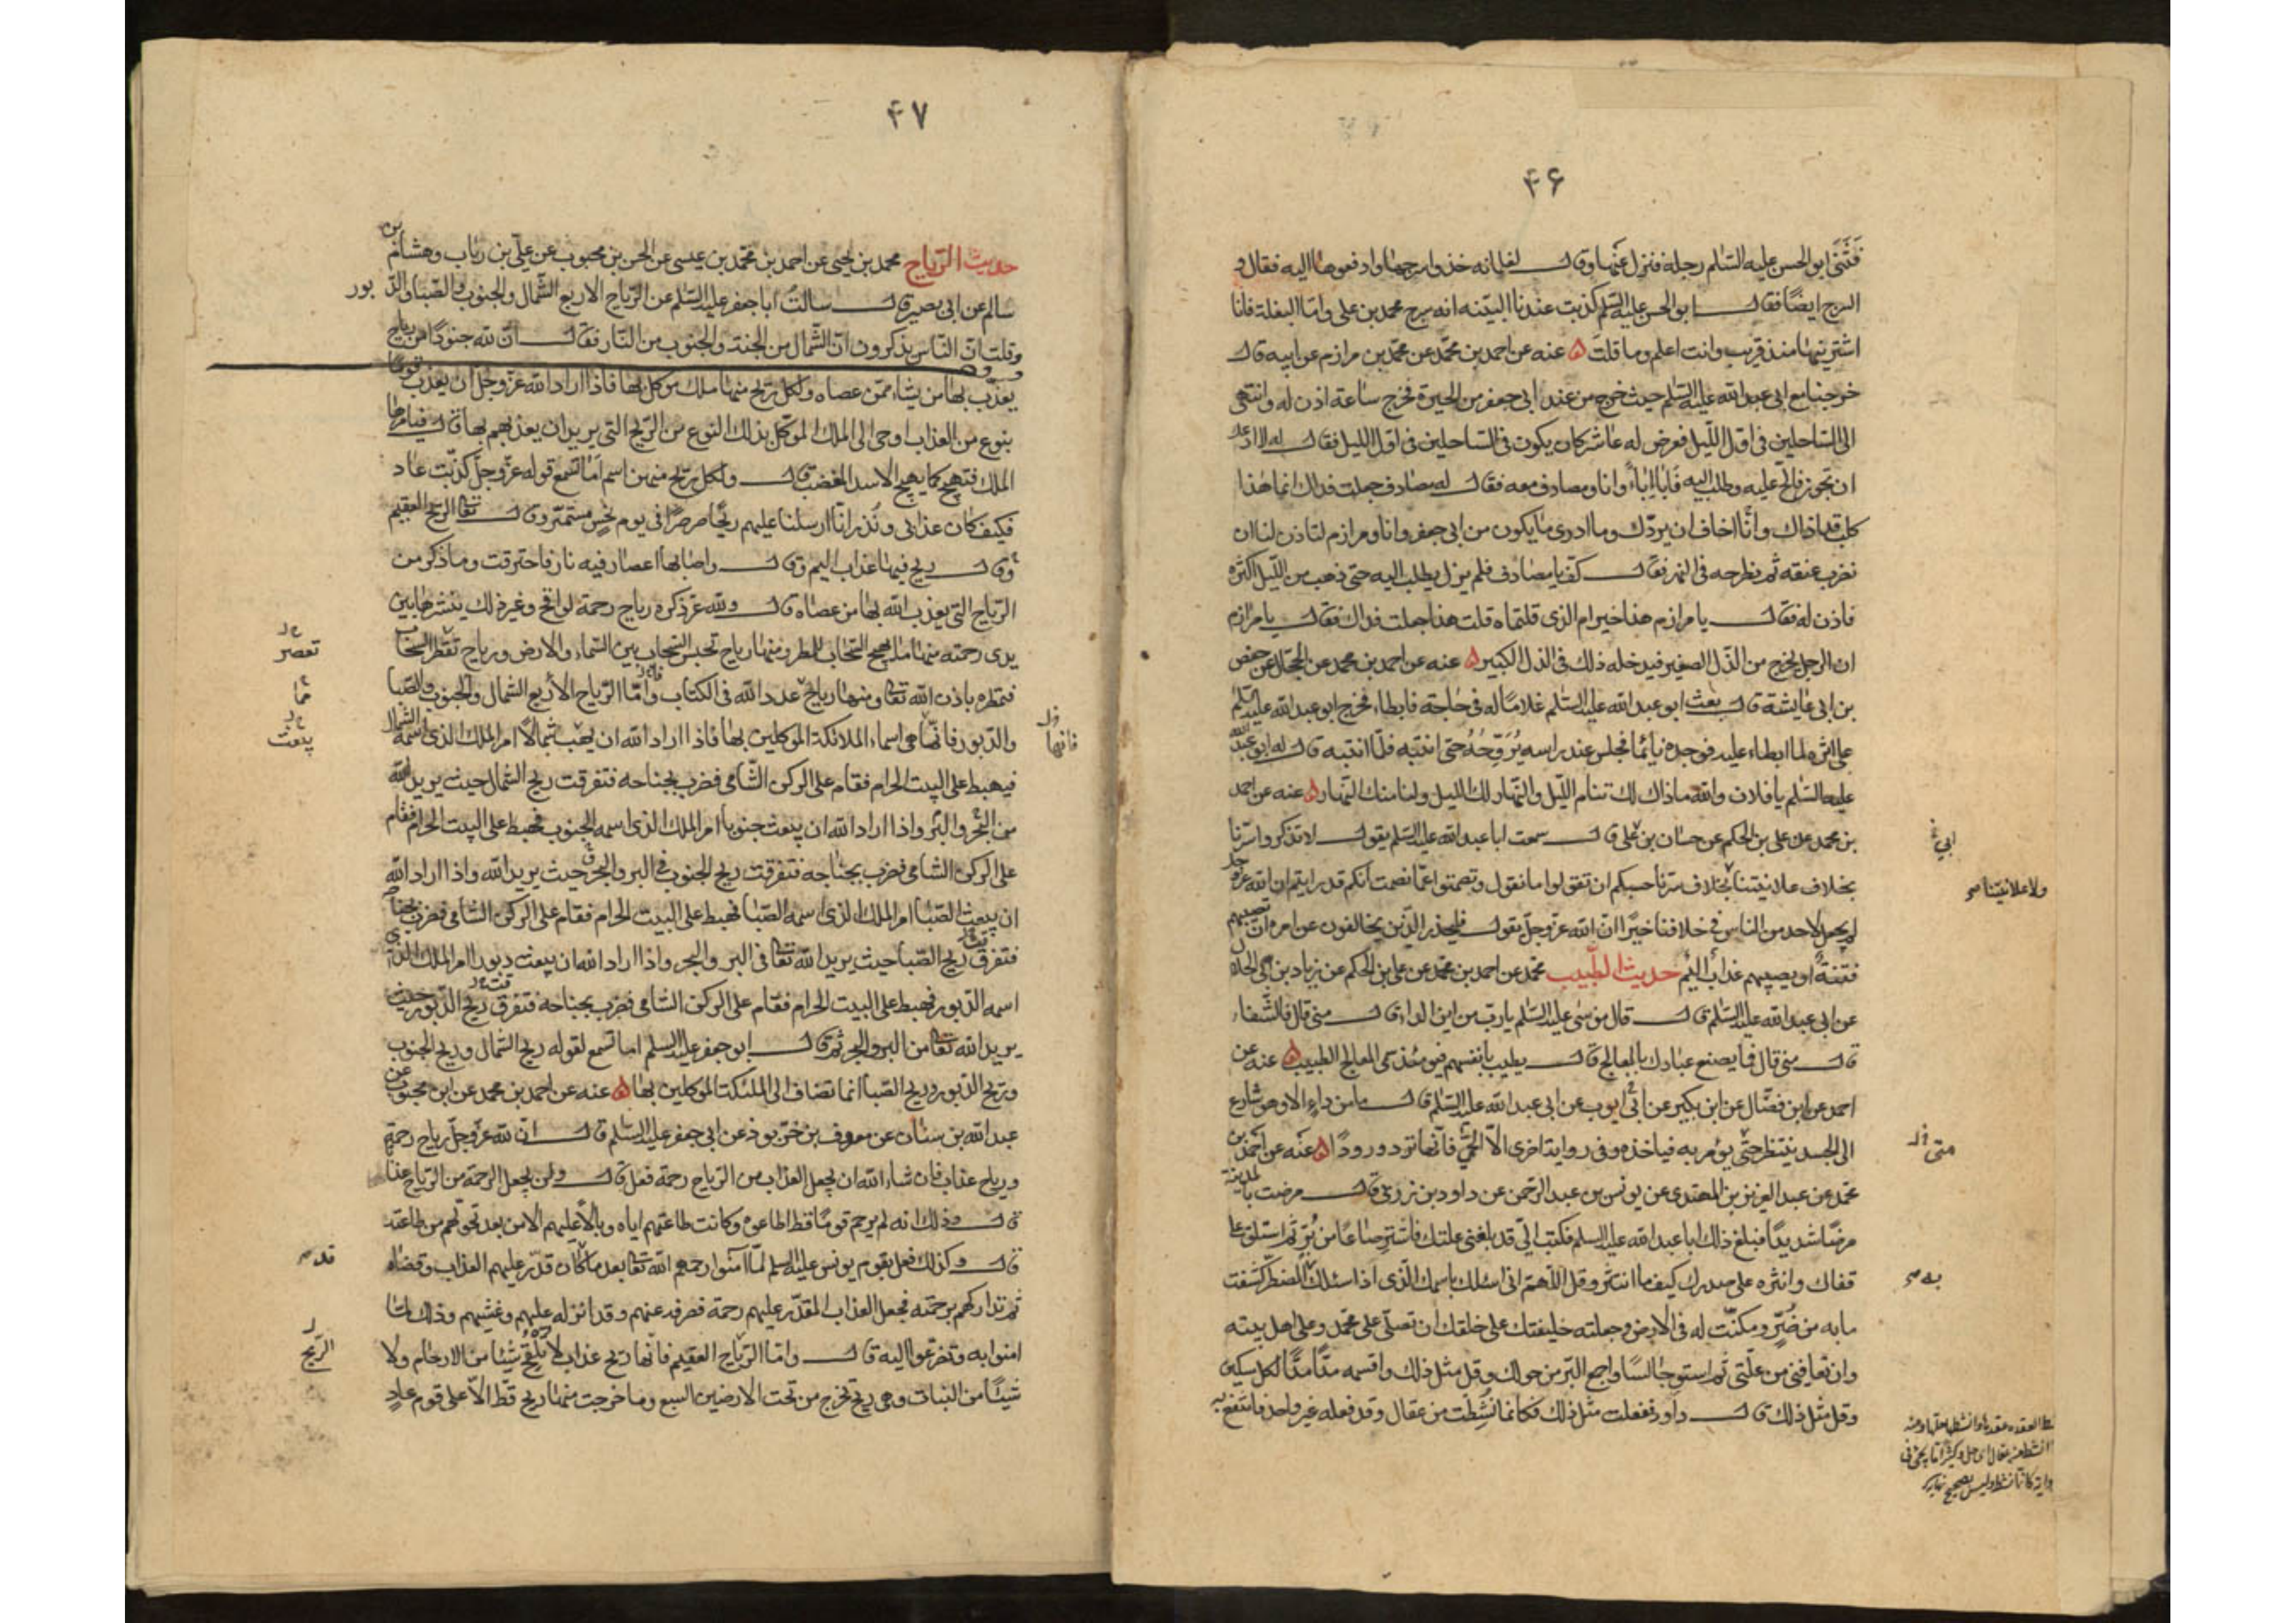 ۴۶
فثنى ابو الحسن عليه السلام رجله فنزل عنها وقال لغلمانه خذوا سرجها وادفعوها اليه فقال و
السرج ايضًا فقال ابو الحسن عليه السلم كذبت عندنا البيّنه انه سرج محمد بن على واما البغلة فانا
اشتريتها منذ قريب وانت اعلم وما قلت ۵ عنه عن احمد بن محمّد عن محمّد بن مرازم عن ابيه قال
خرجنا مع ابى عبد الله عليه السّلم حيث خرج من عند ابى جعفر من الحيرة فخرج ساعة اذن له وانتهى
الى السّاحلين فى اوّل اللّيل فعرض له عاشر كان يكون فى السّاحلين فى اوّل الليل فقال له لا ادعك
ان تجوز فالحّ عليه وطلب اليه فابا اباءً وانا ومصادف معه فقال له مصادف جعلت فداك انما هذا
كلب قد اذاك وانّا اخاف ان يردّك وما ادرى ما يكون من ابى جعفر وانا ومرازم لتاذن لنا ان
نضرب عنقه ثم نطرحه فى النهر فقال كفّ يا مصادف فلم يزل يطلب اليه حتى ذهب من اللّيل اكثره
فاذن له فقال يا مرازم هذا خير ام الذى قلتماه قلت هذا جعلت فداك فقال يا مرازم
ان الرجل يخرج من الذّل الصغير فيدخله ذلك فى الذل الكبير ۵ عنه عن احمد بن محمد عن الحجّال عن حفص
بن ابى عايشة قال بعث ابو عبد الله عليه السّلم غلامًا له فى حاجة فابطاء فخرج ابو عبد الله عليه السّلم
على اثره لما ابطاء عليه فوجده نائمًا فجلس عند راسه يُرَوِّحُهُ حتى انتبه فلمّا انتبه قال له ابو عبد الله
عليه السّلم يا فلان والله ما ذاك لك تنام اللّيل والنّهار لك الليل ولنا منك النّهار ۵ عنه عن احمد
بن محمد عن على بن الحكم عن حسان بن على قال سمعت ابا عبد الله عليه السّلم يقول لا تذكروا سرّنا
ابى
بخلاف علانيتنا بخلاف سرّنا حسبكم ان تقولوا ما نقول وتصمتوا عمّا نصمت انكم قد رايتم ان الله عزّ وجل
ولا علانيتنا صح
لم يجعل لاحد من الناس فى خلافنا خيرًا انّ الله عزّ وجلّ يقول فليحذر الّذين يخالفون عن امره ان تصيبهم
فتنةٌ او يصيبهم عذابٌ اليمٌ حديث الطّبيب محمّد عن احمد بن محمّد عن على بن الحكم عن زياد بن ابى الحلال
عن ابى عبد الله عليه السّلم قال قال موسى عليه السّلم يا ربّ من اين الداء قال منى قال فالشّفاء
قال منى قال فما يصنع عبادك بالمعالج قال يطيب بانفسهم فيومئذ سمى المعالج الطبيب ۵ عنه عن
احمد عن ابن فضّال عن ابن بكير عن ابى ايوب عن ابى عبد الله عليه السّلم قال ما من داءٍ الا وهو شارع
الى الجسد ينتظر حتّى يؤمر به فياخذه وفى رواية اخرى الّا الحمّى فانّها ترد ورودًا ۵ عنه عن احمد بن
متى خ ل
محمّد عن عبد العزيز بن المهتدى عن يونس بن عبد الرّحمن عن داود بن زربى قال مرضت بالمدينة
مرضًا شديدًا فبلغ ذلك ابا عبد الله عليه السلم فكتب الىّ قد بلغنى علتك فاشتر صاعًا من بُرّ ثم استلق على
قفاك وانثره على صدرك كيف ما انتثر وقل اللّهمّ انى اسئلك باسمك الّذى اذا سئلك المضطرّ كشفت
به صح
ما به من ضُرٍّ ومكنّت له فى الارض وجعلته خليفتك على خلقك ان تصلّى على محمّد وعلى اهل بيته
وان تعافينى من علّتى ثم استو جالسًا واجمع البرّ من حولك وقل مثل ذلك واقسمه مدًّا مدًّا لكل مسكين
وقل مثل ذلك قال داود ففعلت مثل ذلك فكانما نشطت من عقال وقد فعله غير واحد فانتفع به
۴۷
حديث الرّياح محمد بن يحيى عن احمد بن محمّد بن عيسى عن الحسن بن محبوب عن علىّ بن رياب وهشام بن
سالم عن ابى بصير قال سالت ابا جعفر عليه السّلم عن الرّياح الاربع الشّمال والجنوب والصّبا والدّبور
وقلت انّ النّاس يذكرون انّ الشّمال من الجنة والجنوب من النّار فقال انّ لله جنودًا من رياح
يعذّب بها من يشاء ممّن عصاه ولكل ريح منها ملك موكل بها فاذا اراد الله عزّ وجلّ ان يعذّب قومًا
بنوع من العذاب اوحى الى الملك الموكّل بذلك النوع من الرّيح التى يريد ان يعذبهم بها قال فيامرها
الملك فتهيج كما يهيج الاسد المغضب قال ولكل ريح منهن اسم اما تسمع قوله عزّ وجلّ كذّبت عاد
فكيف كان عذابى ونُذر انا ارسلنا عليهم ريحًا صرصرًا فى يوم نحس مستمرّ وقال تعالى الرّيح العقيم
وقال ريح فيها عذاب اليم وقال واصابها اعصار فيه نار فاحترقت وما ذكر من
الرّياح التى يعذب الله بها من عصاه قال ولله عزّ ذكره رياح رحمة لواقح وغير ذلك ينشرها بين
يدى رحمته منها ما يهيج السّحاب للمطر ومنها رياح تحبس السّحاب بين السّماء والارض ورياح تقطر السحاب
تعصر
فتمطره باذن الله تعالى ومنها رياح عدد الله فى الكتاب وامّا الرّياح الأربع الشمال والجنوب والصّبا
والدّبور فانّها هى اسماء الملائكة الموكلين بها فاذا اراد الله ان يهب شمالًا امر الملك الذى اسمه الشمال
فانها
يبعث
فيهبط على البيت الحرام فقام على الركن الشّامى فضرب بجناحه فتفرقت ريح الشمال حيث يريد الله
من البحر والبرّ واذا اراد الله ان يبعث جنوبا امر الملك الذى اسمه الجنوب فهبط على البيت الحرام فقام
على الركن الشامى فضرب بجناحه فتفرقت ريح الجنوب فى البر والبحر حيث يريد الله واذا اراد الله
ان يبعث الصّبا امر الملك الذى اسمه الصّبا فهبط على البيت الحرام فقام على الركن الشامى فضرب بجناحه
فتفرق ريح الصّبا حيث يريد الله تعالى فى البر والبحر واذا اراد الله ان يبعث دبورا امر الملك الذى
اسمه الدّبور فهبط على البيت الحرام فقام على الركن الشامى فضرب بجناحه فتفرق ريح الدّبور حيث
يريد الله تعالى من البر والبحر ثم قال ابو جعفر عليه السلم اما تسمع لقوله ريح الشمال وريح الجنوب
وريح الدّبور وريح الصّبا انما تضاف الى الملئكة الموكلين بها ۵ عنه عن احمد بن محمد عن ابن محبوب عن
عبد الله بن سنان عن معروف بن خرّبوذ عن ابى جعفر عليه السّلم قال ان لله عزّ وجلّ رياح رحمة
ورياح عذاب فان شاء الله ان يجعل العذاب من الرّياح رحمة فعل قال ولن يجعل الرّحمة من الرّياح عذابا
قال وذلك انه لم يرحم قومًا قط اطاعوه وكانت طاعتهم اياه وبالًا عليهم الا من بعد تحوّلهم من طاعته
قال وكذلك فعل بقوم يونس عليه السلم لمّا آمنوا رحمهم الله تعالى بعد ما كان قدّر عليهم العذاب وقضاه
قد صح
ثم تداركهم برحمته فجعل العذاب المقدّر عليهم رحمة فصرفه عنهم وقد انزله عليهم وغشيهم وذلك لمّا
امنوا به وتضرعوا اليه قال وامّا الرّياح العقيم فانّها ريح عذاب لا تلقح شيئًا من الارحام ولا
الرّيح
شيئًا من النبات وهى ريح تخرج من تحت الارضين السبع وما خرجت منها ريح قطّ الّا على قوم عادٍ